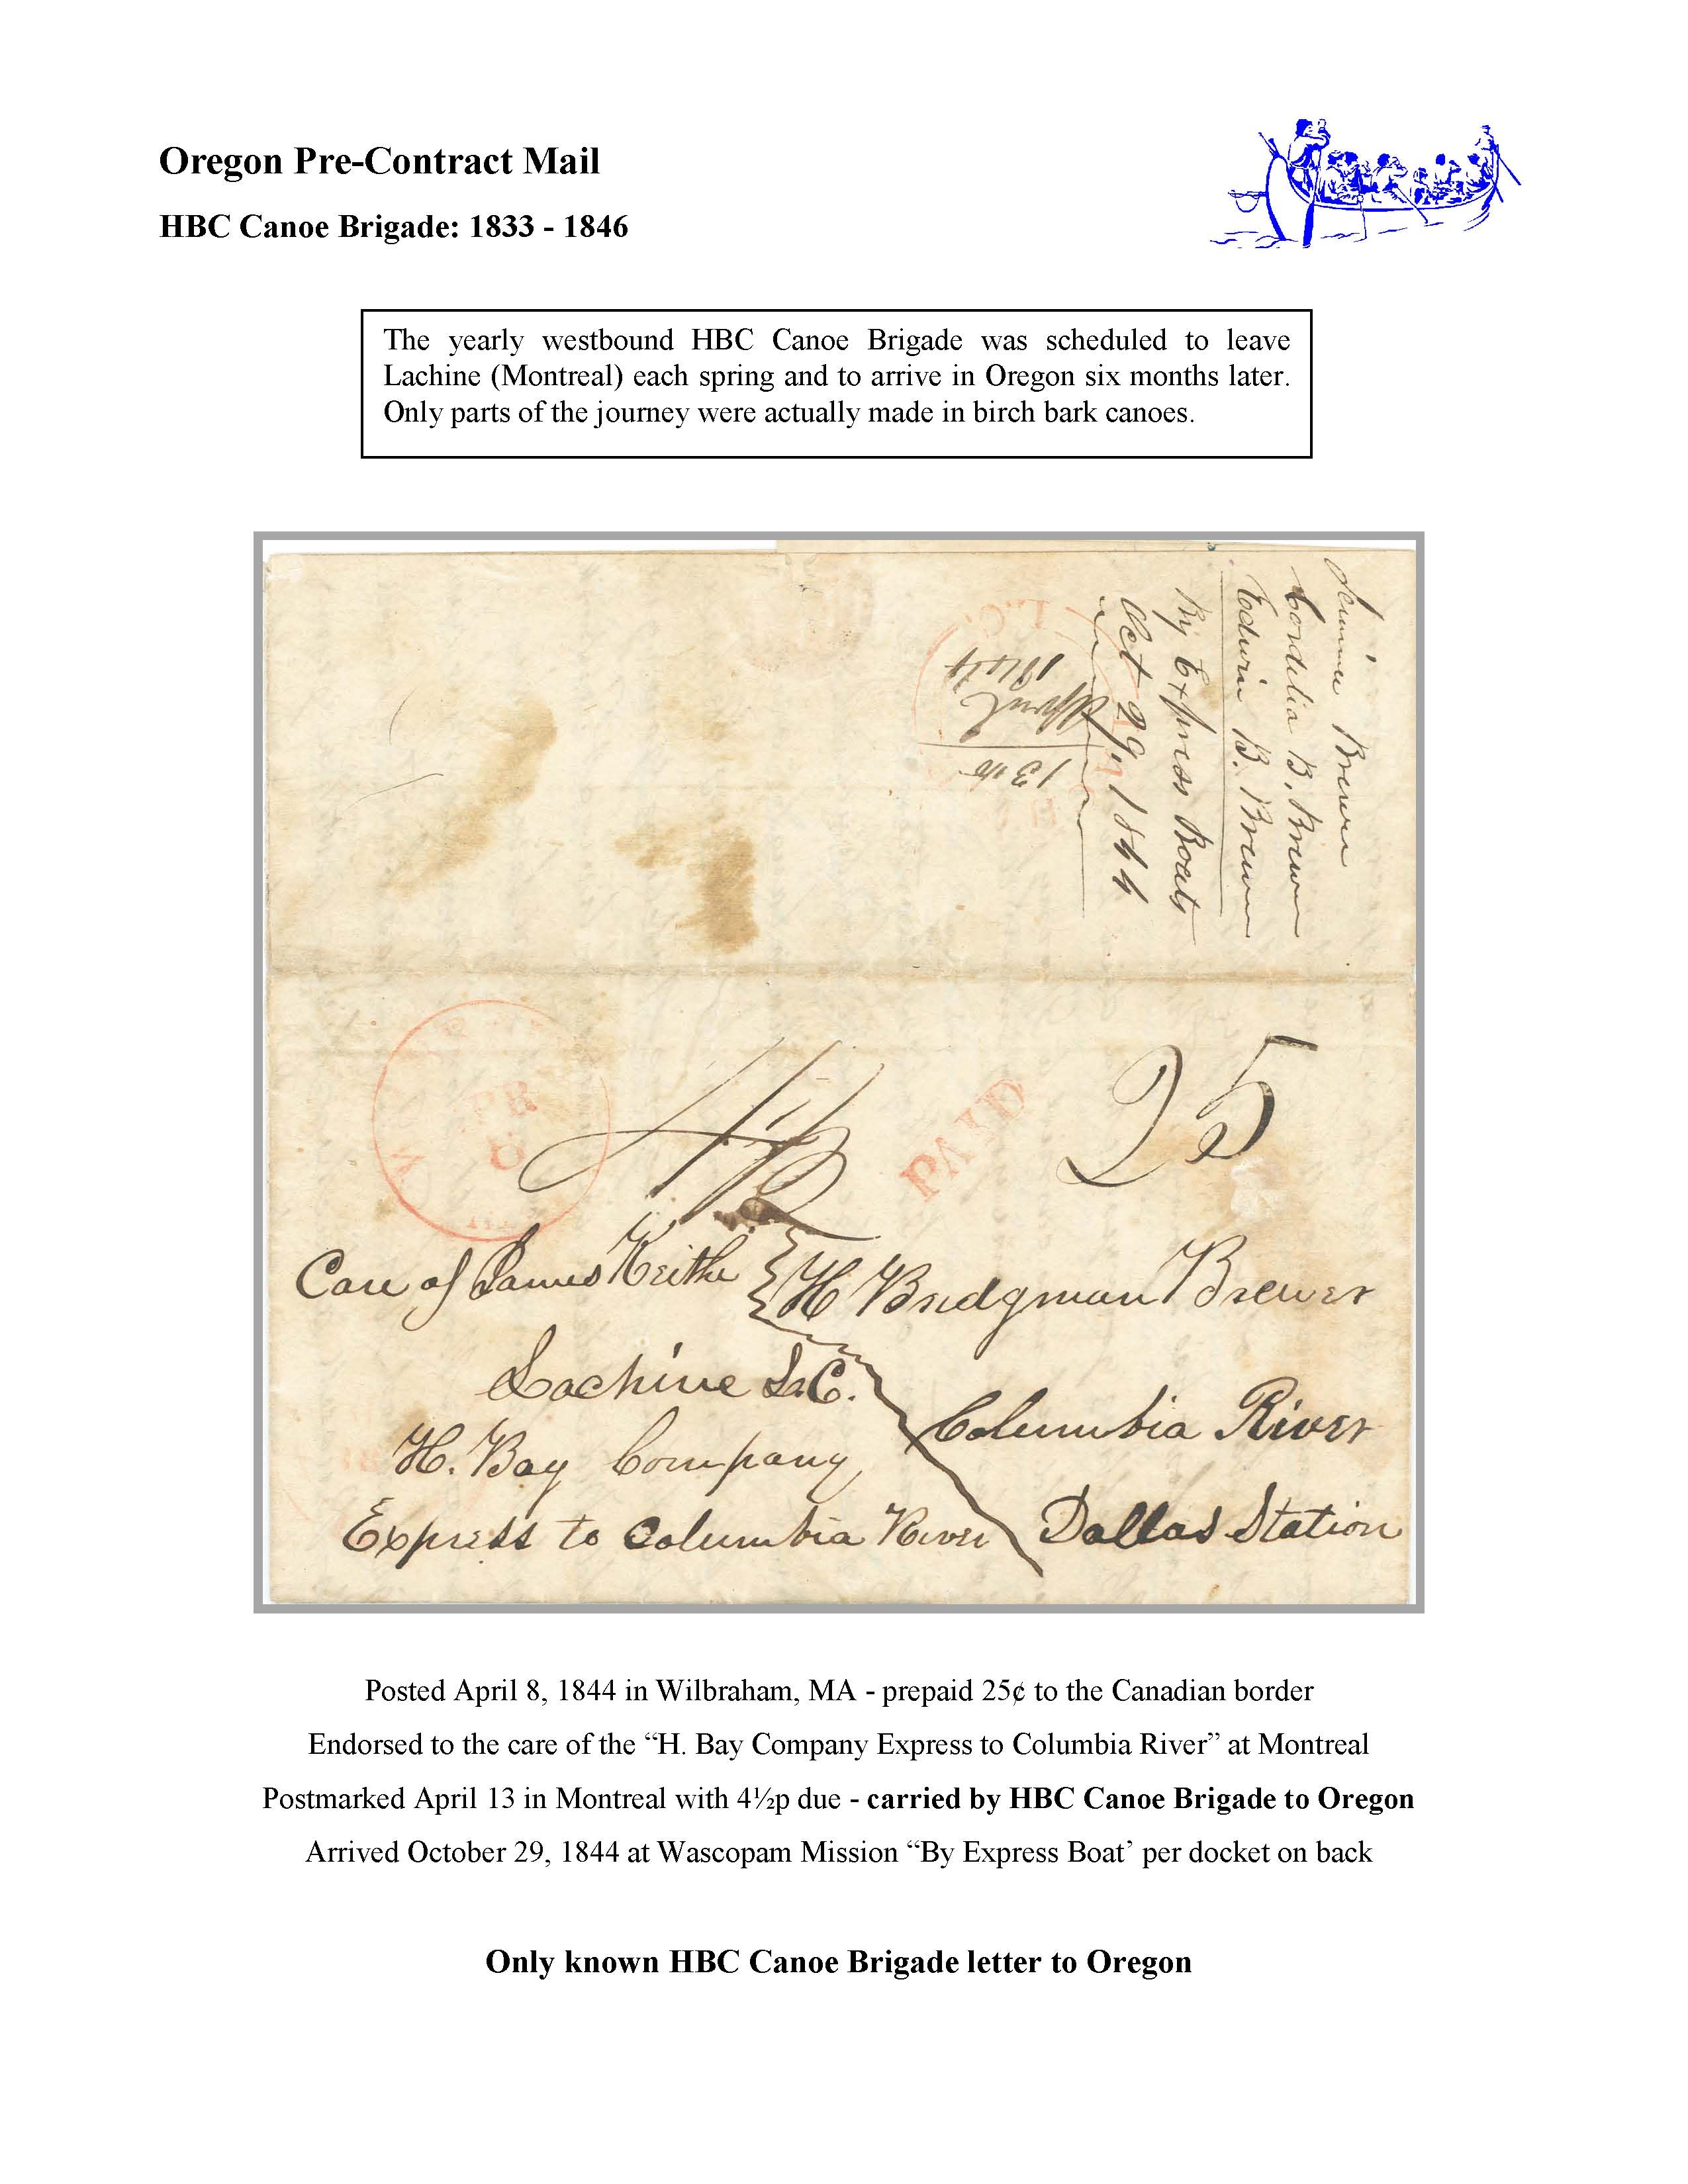 Oregon Pre-Contract Mail
HBC Canoe Brigade: 1833 - 1846
The yearly westbound HBC Canoe Brigade was scheduled to leave
Lachine (Montreal) each spring and to arrive in Oregon six months later.
Only parts of the journey were actually made in birch bark canoes.
Brewer
Cordelia B. Brewer
Edwin B. Brewer
By Express Boats
Oct 29, 1844
April
1844
13th
L.C.
APR
8
PAID
25
4½
Care of James Keith
Lachine L.C.
H. Bay Company
Express to Columbia River
H Bridgman Brewer
Columbia River
Dallas Station
Posted April 8, 1844 in Wilbraham, MA - prepaid 25¢ to the Canadian border
Endorsed to the care of the “H. Bay Company Express to Columbia River” at Montreal
Postmarked April 13 in Montreal with 4½p due - carried by HBC Canoe Brigade to Oregon
Arrived October 29, 1844 at Wascopam Mission “By Express Boat’ per docket on back
Only known HBC Canoe Brigade letter to Oregon